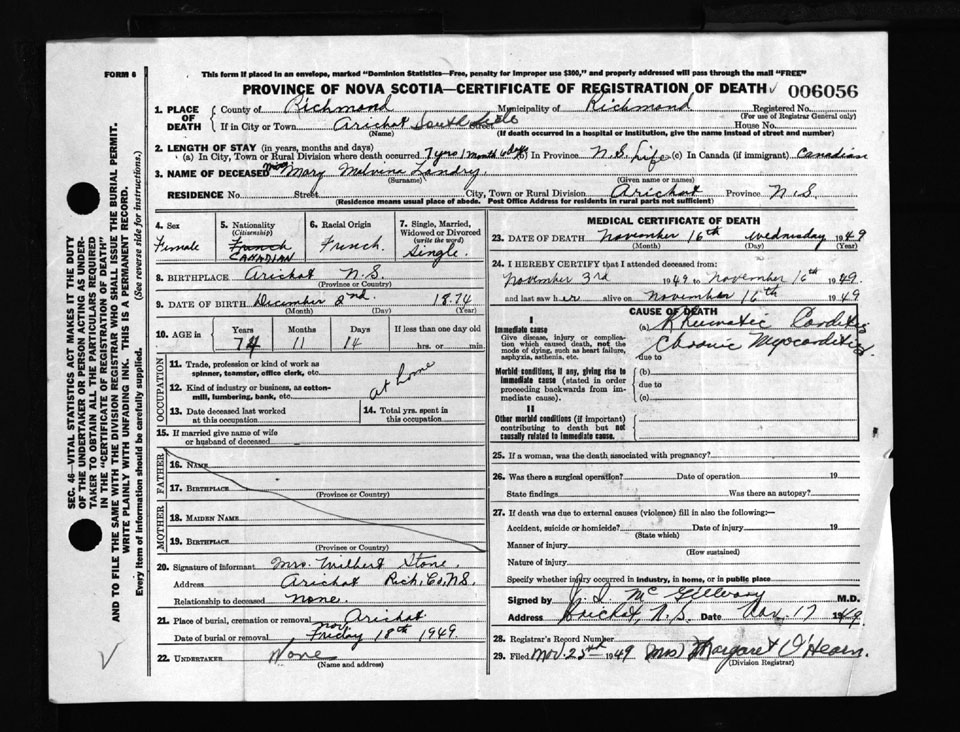 FORM 6
This form if placed in an envelope, marked "Dominion Statistics—Free, penalty for improper use $300," and properly addressed will pass through the mail "FREE"
PROVINCE OF NOVA SCOTIA—CERTIFICATE OF REGISTRATION OF DEATH 006056
1. PLACE OF DEATH { County of Richmond Municipality of Richmond Registered No.
(For use of Registrar General only)
If in City or Town Arichat South Side Street House No.
(Name) (If death occurred in a hospital or institution, give the name instead of street and number)
2. LENGTH OF STAY (in years, months and days)
(a) In City, Town or Rural Division where death occurred 7 yrs 1 month days (b) In Province N.S. Life (c) In Canada (if immigrant) Canadian
3. NAME OF DECEASED Miss Mary Malvina Landry
(Surname) (Given name or names)
RESIDENCE No. Street City, Town or Rural Division Arichat Province N.S.
(Residence means usual place of abode. Post Office Address for residents in rural parts not sufficient)
4. Sex
Female
5. Nationality
(Citizenship)
French
CANADIAN
6. Racial Origin
French.
7. Single, Married, Widowed or Divorced
(write the word)
Single.
8. BIRTHPLACE Arichat N.S.
(Province or Country)
9. DATE OF BIRTH December 2nd. 1874
(Month) (Day) (Year)
10. AGE in { Years Months Days If less than one day old
74 11 14 hrs. or min.
OCCUPATION
11. Trade, profession or kind of work as spinner, teamster, office clerk, etc.
12. Kind of industry or business, as cotton-mill, lumbering, bank, etc.
at home
13. Date deceased last worked at this occupation
14. Total yrs. spent in this occupation
15. If married give name of wife or husband of deceased
FATHER
16. NAME
17. BIRTHPLACE
(Province or Country)
MOTHER
18. MAIDEN NAME
19. BIRTHPLACE
(Province or Country)
20. Signature of informant Mrs. Wilbert Stone.
Address Arichat Rich. Co, N.S.
Relationship to deceased None.
21. Place of burial, cremation or removal Arichat
Date of burial or removal Nov. Friday 18th 1949
22. UNDERTAKER None
(Name and address)
MEDICAL CERTIFICATE OF DEATH
23. DATE OF DEATH November 16th Wednesday 1949
(Month) (Day) (Year)
24. I HEREBY CERTIFY that I attended deceased from:
November 3rd 1949 to November 16th 1949.
and last saw her alive on November 16th 1949
CAUSE OF DEATH
I
Immediate cause
Give disease, injury or complication which caused death, not the mode of dying, such as heart failure, asphyxia, asthenia, etc.
(a) Rheumatic Carditis
Chronic Myocarditis.
due to
Morbid conditions, if any, giving rise to immediate cause (stated in order proceeding backwards from immediate cause).
(b)
due to
(c)
II
Other morbid conditions (if important) contributing to death but not causally related to immediate cause.
25. If a woman, was the death associated with pregnancy?
26. Was there a surgical operation? Date of operation 19
State findings Was there an autopsy?
27. If death was due to external causes (violence) fill in also the following:—
Accident, suicide or homicide? Date of injury 19
(State which)
Manner of injury
(How sustained)
Nature of injury
Specify whether injury occurred in industry, in home, or in public place
Signed by Mc M.D.
Address Arichat, N.S. Date Nov. 17 1949.
28. Registrar's Record Number
29. Filed Nov. 1949 (Mrs) Margaret O'Hearn.
(Division Registrar)
SEC. 46—VITAL STATISTICS ACT MAKES IT THE DUTY
OF THE UNDERTAKER OR PERSON ACTING AS UNDER-
TAKER TO OBTAIN ALL THE PARTICULARS REQUIRED
IN THE "CERTIFICATE OF REGISTRATION OF DEATH"
AND TO FILE THE SAME WITH THE DIVISION REGISTRAR WHO SHALL ISSUE THE BURIAL PERMIT.
WRITE PLAINLY WITH UNFADING INK. THIS IS A PERMANENT RECORD.
Every item of information should be carefully supplied. (See reverse side for instructions.)